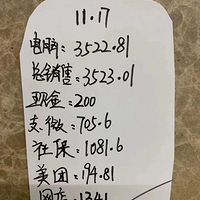 11.17
电脑：3522.81
总销售：3523.01
现金=200
支.微：705.6
社保：1081.6
美团：194.81
网店：1341